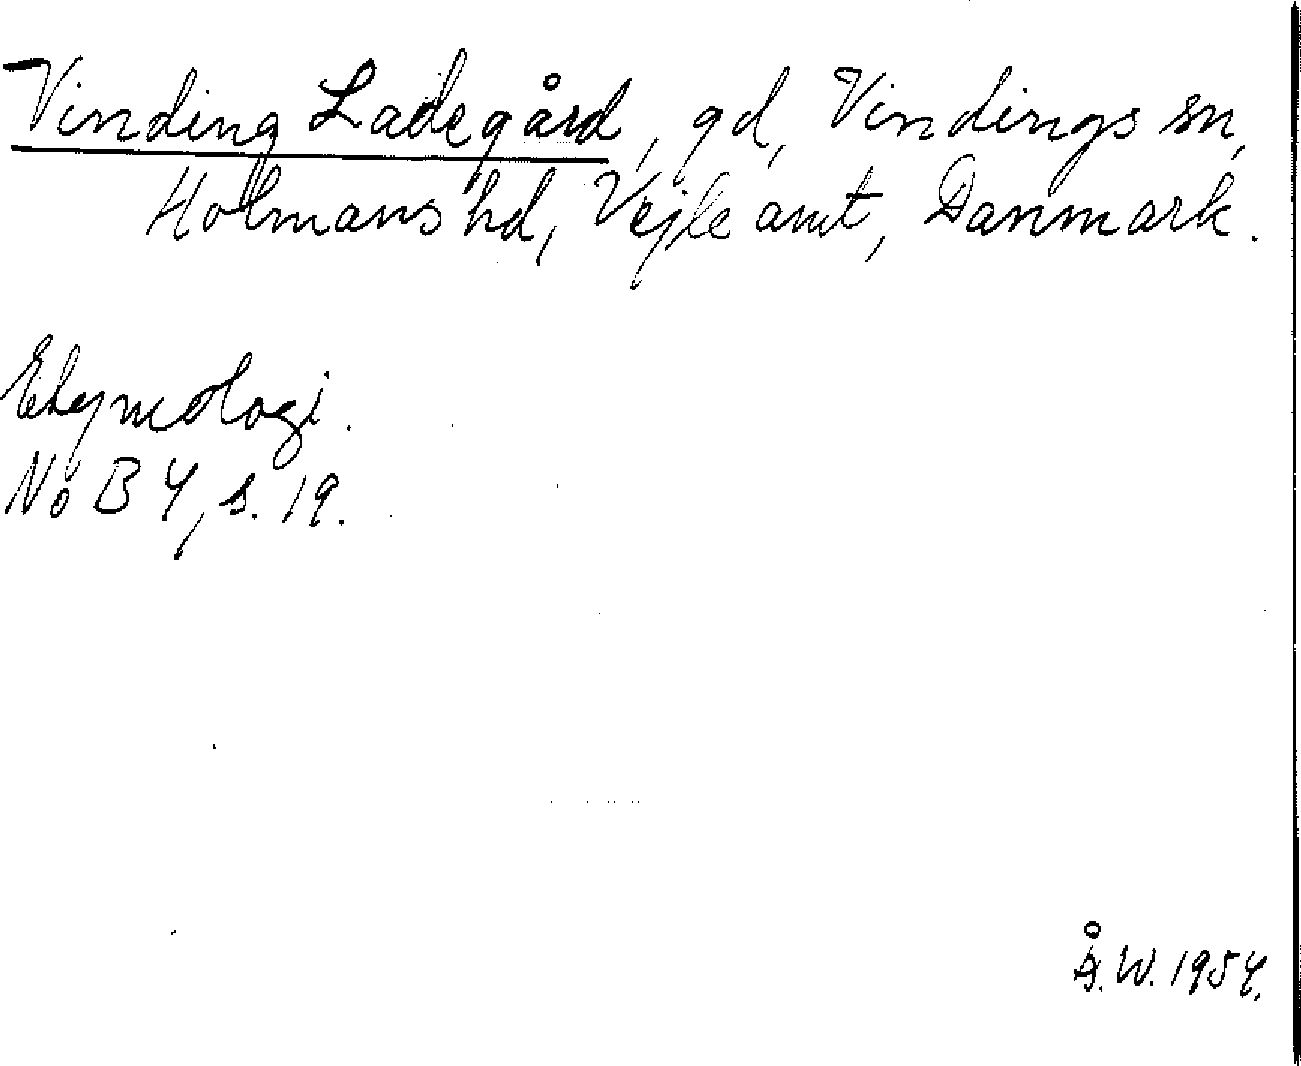 Vinding Ladegård, gd, Vindings sn,
Holmans hd, Vejle amt, Danmark.
Etymologi.
NoB 4, s. 19.
Å.W. 1954.